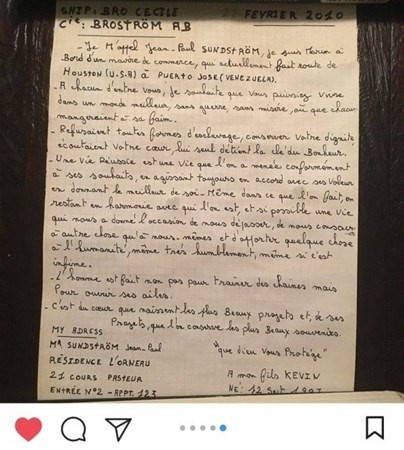 SHIP: BRO CECILE 22 FEVRIER 2010
Cie: BROSTRÖM AB
- Je M'appel Jean-Paul SUNDSTRÖM, je suis Marin à
Bord d'un navire de commerce, qui actuellement fait route de
HOUSTON (U.S.A) à PUERTO JOSE (VENEZUELA).
- A chacun d'entre vous, Je souhaite que vous puissiez vivre
dans un monde meilleur, sans guerre, sans misère, où que chacun
mangeraient à sa faim.
- Refusaient toutes formes d'esclavage, conserver votre dignité
écoutaient votre cœur, lui seul détient la clé du Bonheur.
- Une vie Réussie est une vie que l'on a menée conformément
à ses souhaits, en agissant toujours en accord avec ses valeurs
en donnant le meilleur de soi-Même dans ce que l'on fait, en
restant en harmonie avec qui l'on est, et si possible une vie
qui nous a donné l'occasion de nous dépasser, de nous consacrer
à autre chose qu'à nous-mêmes et d'apporter quelque chose
à l'humanité, même très humblement, même si c'est
infime.
- L'homme est fait non pas pour traîner des chaînes mais
Pour ouvrir ses ailes.
- C'est du cœur que naissent les plus Beaux projets et, de ses
Projets, que l'on conserve les plus Beaux souvenirs.
MY ADRESS
Mr SUNDSTRÖM Jean-Paul "que dieu vous Protège"
RÉSIDENCE L'ORNEAU
21 COURS PASTEUR A mon fils KEVIN
ENTRÉE N°2 - APPT. 123 NÉ: 12 Sept